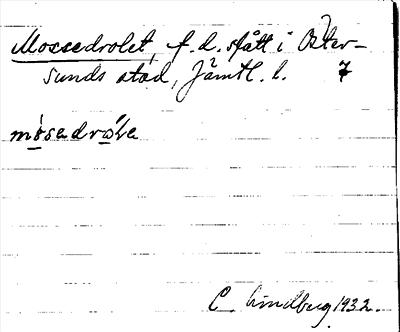 Mossedrolet, f. d. slått i Öster-
sunds stad, Jämtl. l. 7
mósedrǿle
C. Lindberg 1932.